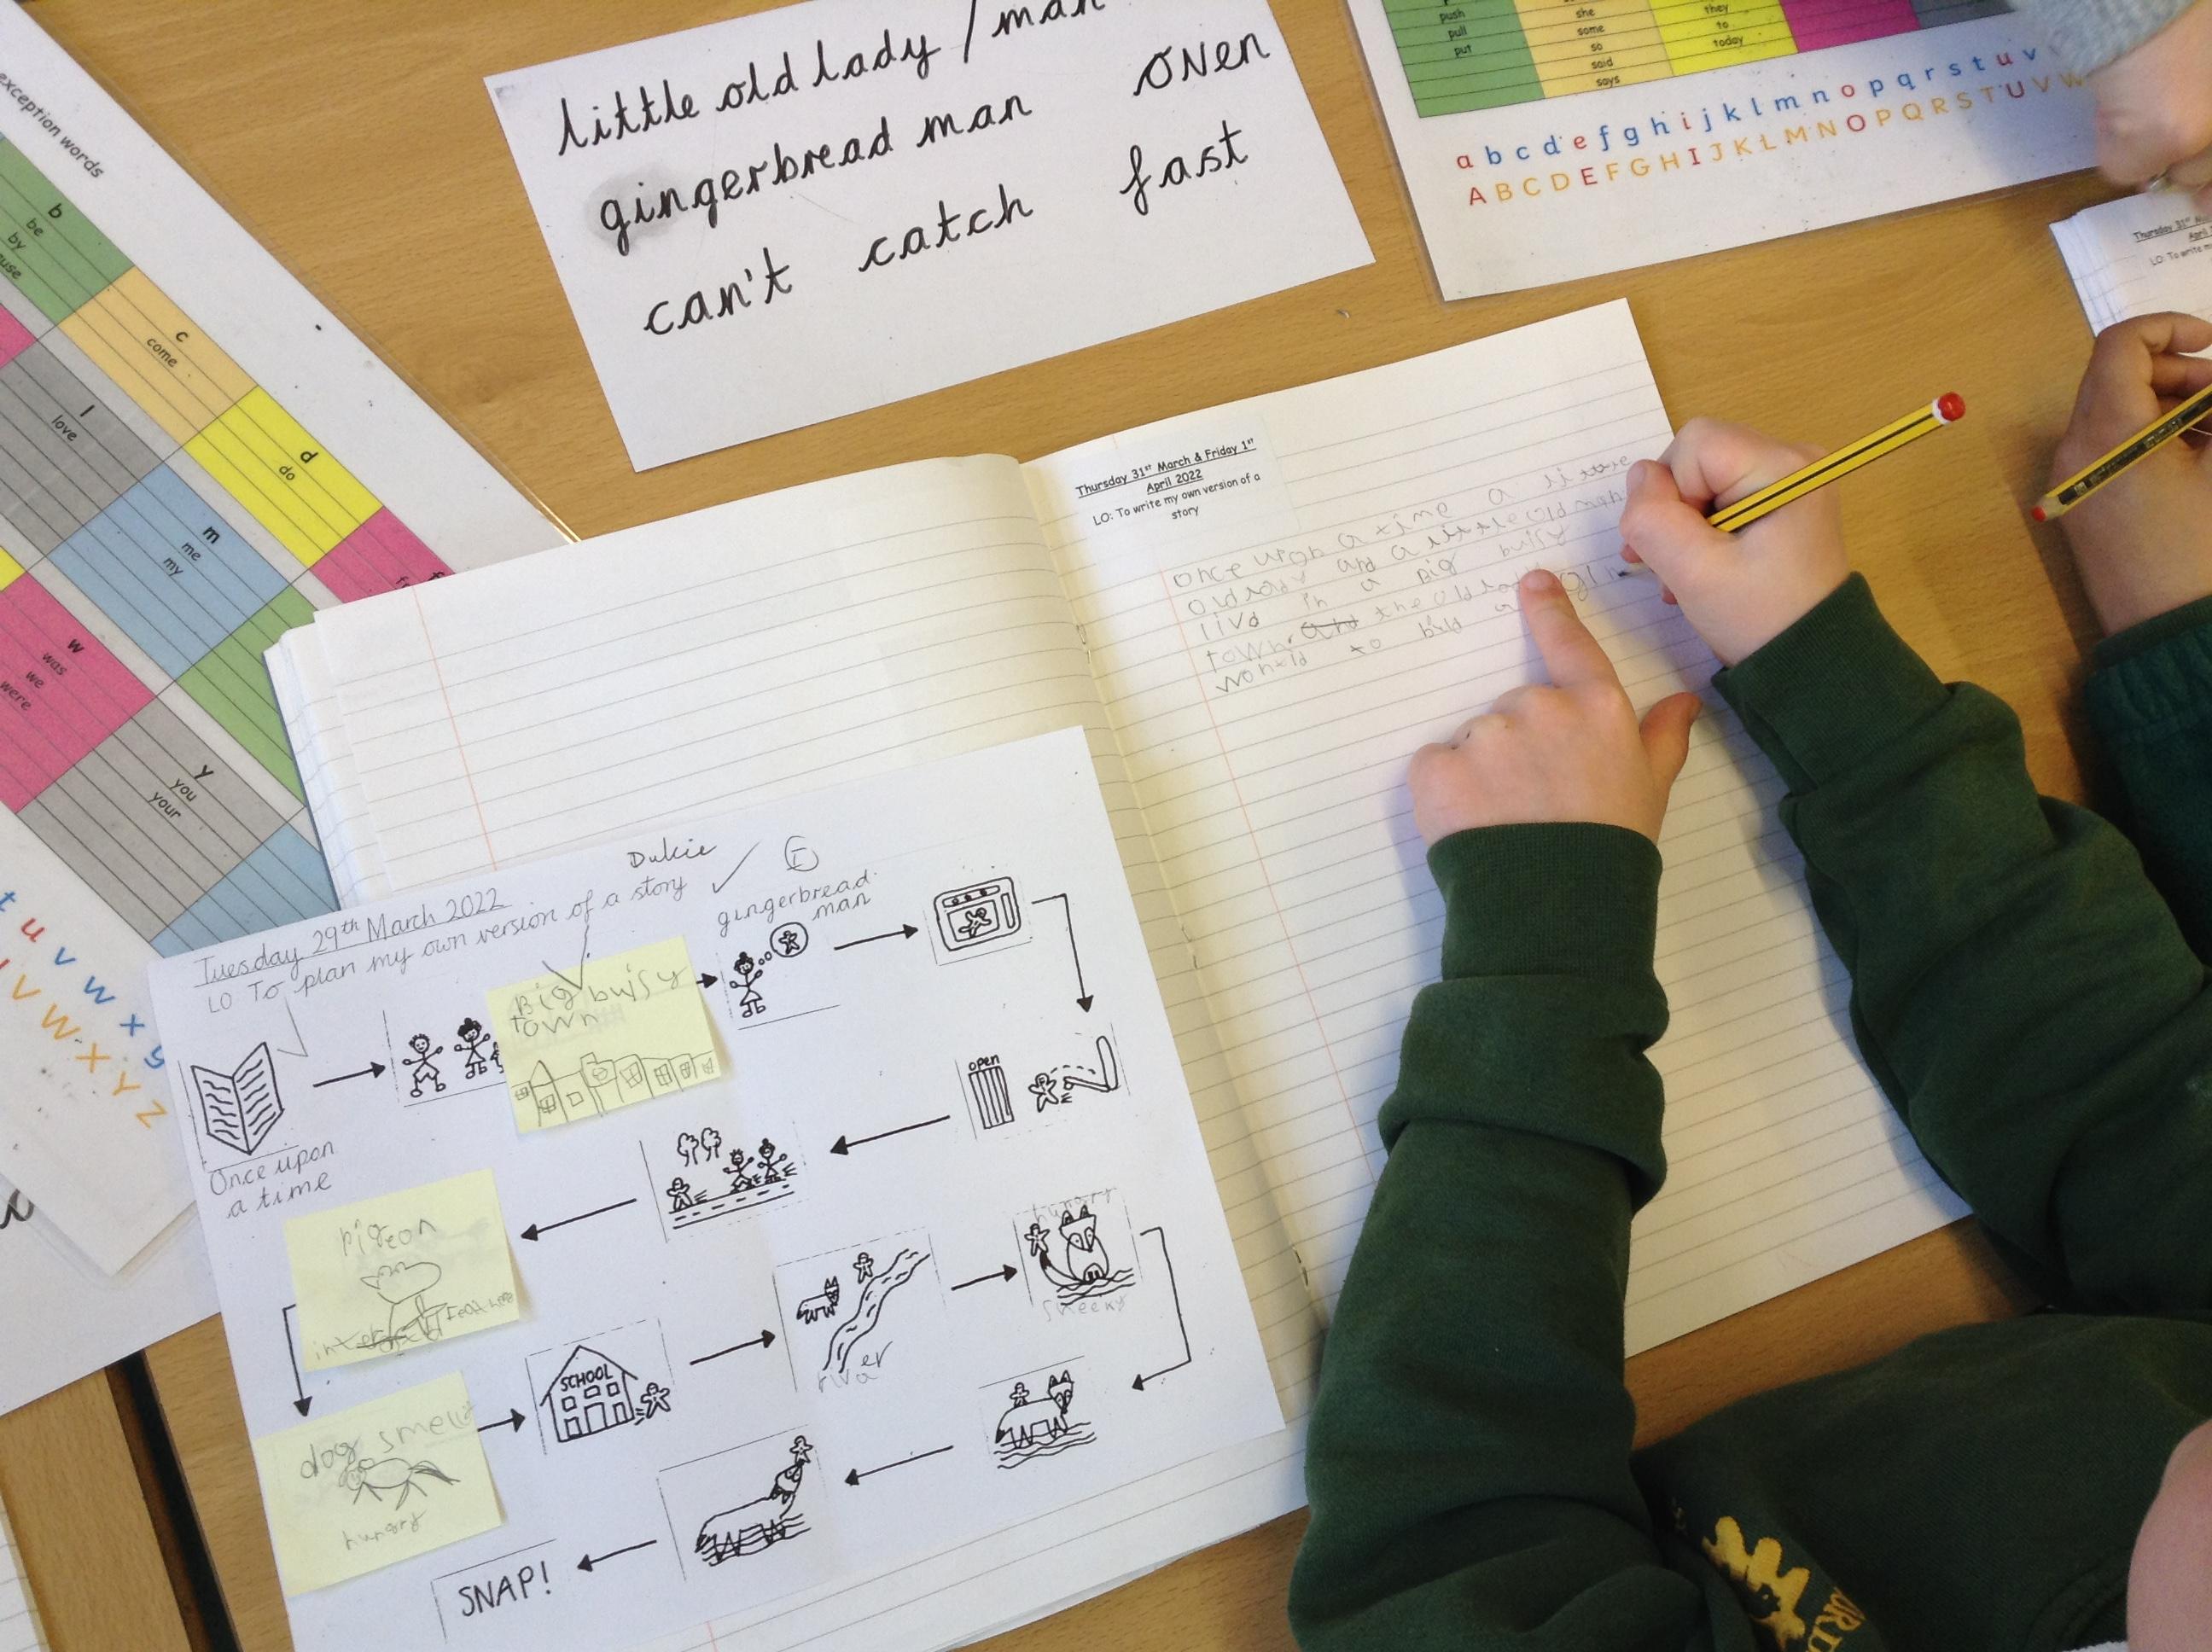 exception words
b
be
by
c
come
d
do
l
love
m
me
my
w
was
we
were
y
you
your
t u v w x y
V W X Y Z
little old lady / man
gingerbread man oven
can't catch fast
push
pull
put
she
some
so
said
says
they
to
today
a b c d e f g h i j k l m n o p q r s t u v
A B C D E F G H I J K L M N O P Q R S T U V W
Thursday 31st March & Friday 1st
April 2022
LO: To write my own version of a
story
Thursday 31st
LO: To write
once upon a time a
and a
livd in a big buisy
town. and the old
to a
Dulcie
Tuesday 29th March 2022
LO To plan my own version of a story
E
gingerbread
man
Big buisy
town
Once upon
a time
open
pigeon
dog smell
hungry
SCHOOL
river
sneeky
SNAP!